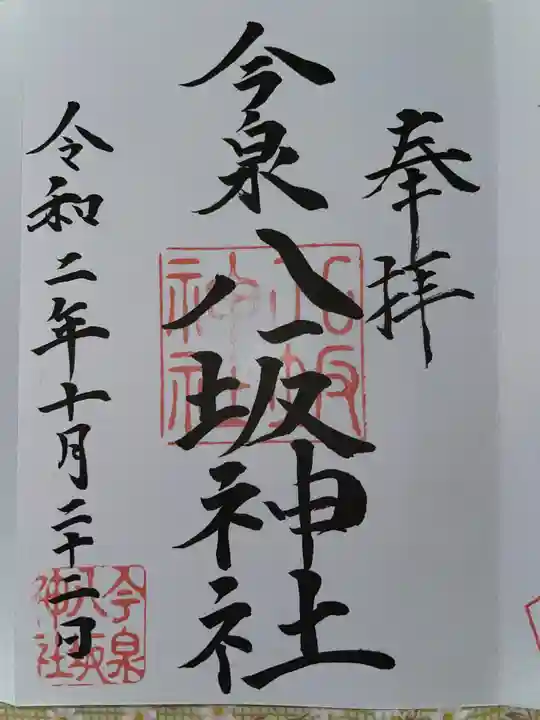 奉拝
今泉八坂神社
八坂神社
令和二年十月二十二日
今泉八坂神社